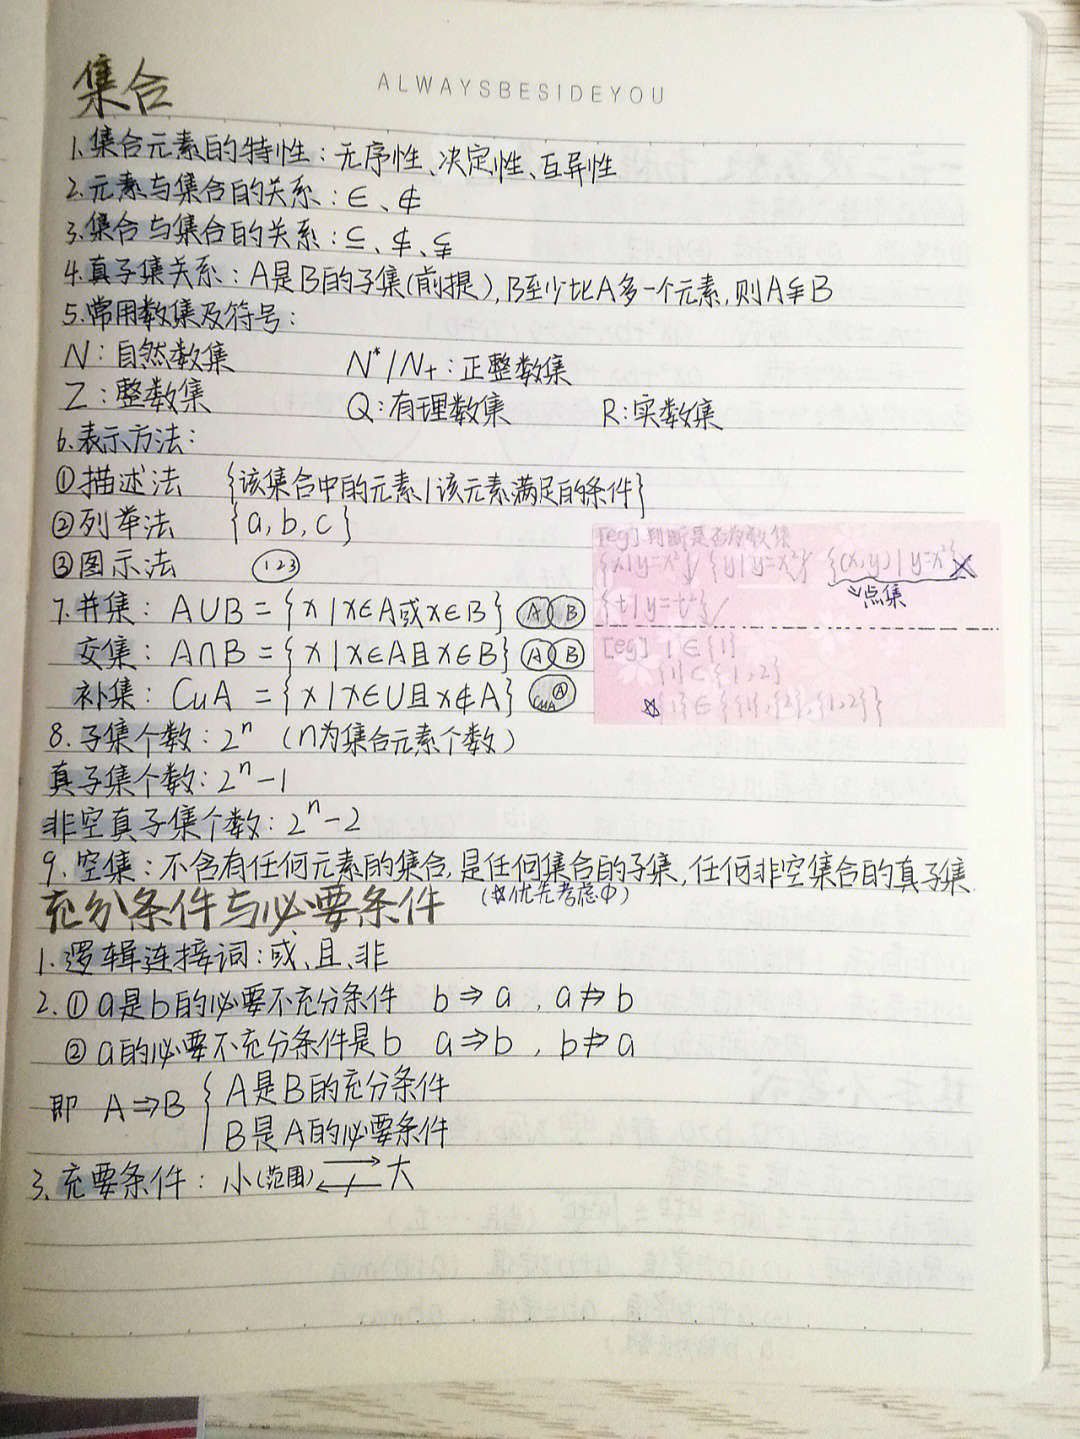 ALWAYSBESIDEYOU
集合
1.集合元素的特性：无序性、决定性、互异性
2.元素与集合的关系：∈、∉
3.集合与集合的关系：⊆、⊄、⊊
4.真子集关系：A是B的子集(前提),B至少比A多一个元素,则A⊊B
5.常用数集及符号：
N：自然数集 N*/N₊：正整数集
Z：整数集 Q:有理数集 R:实数集
6.表示方法：
①描述法 {该集合中的元素|该元素满足的条件}
②列举法 {a,b,c}
③图示法 123
[eg]判断是否为数集
{x|y=x²}√ {y|y=x²}√ {(x,y)|y=x²}×
↘点集
{t|y=t²}√
7.并集：A∪B={x|x∈A或x∈B} A B
交集：A∩B={x|x∈A且x∈B} A B
补集：CuA={x|x∈U且x∉A} CuA A
[eg] 1∈{1}
{1}⊂{1,2}
☆{1}∈{{1},{2},{1,2}}
8.子集个数：2ⁿ （n为集合元素个数）
真子集个数：2ⁿ-1
非空真子集个数：2ⁿ-2
9.空集：不含有任何元素的集合,是任何集合的子集,任何非空集合的真子集
(☆优先考虑φ)
充分条件与必要条件
1.逻辑连接词：或、且、非
2.①a是b的必要不充分条件 b⇒a，a⇏b
②a的必要不充分条件是b a⇒b，b⇏a
即 A⇒B { A是B的充分条件
B是A的必要条件
3.充要条件：小(范围) ⇄ 大